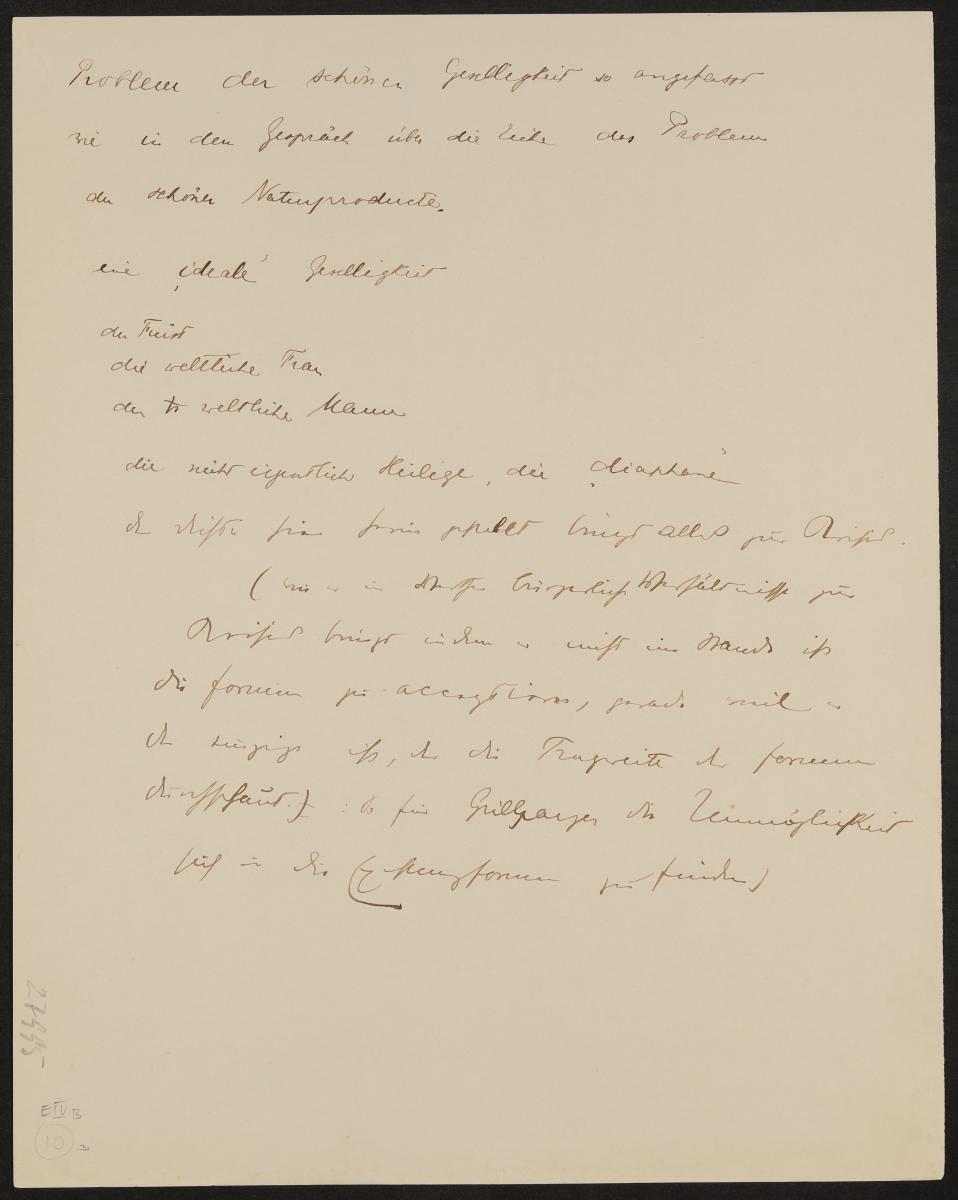 Problem der schönen Geselligkeit so angefasst
wie in dem Gespräch über die das Problem
der schönen Naturproducte.
eine „ideale“ Geselligkeit
der Fürst
die weltliche Frau
der weltliche Mann
die nicht eigentlich Heilige, die „diaphane“
der Dichter hier herein gestellt bringt alles zur Krisis.
(wie er im Werther bürgerliche Verhältnisse zur
Krisis bringt indem er nicht im Stande ist
die Formen zu acceptieren, gerade weil er
der einzige ist, der die Tragweite der Formen
durchschaut.) : so für Grillparzer die Unmöglichkeit
sich in die Existenzformen zu finden)
27995
E IV B
10